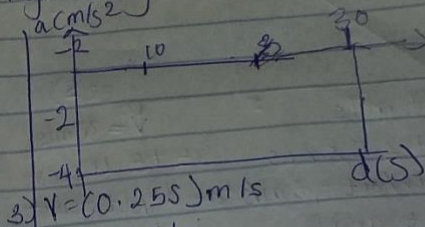 a(m/s²)
10 20 30
-2
-4
d(s)
3) V = (0.25S) m/s